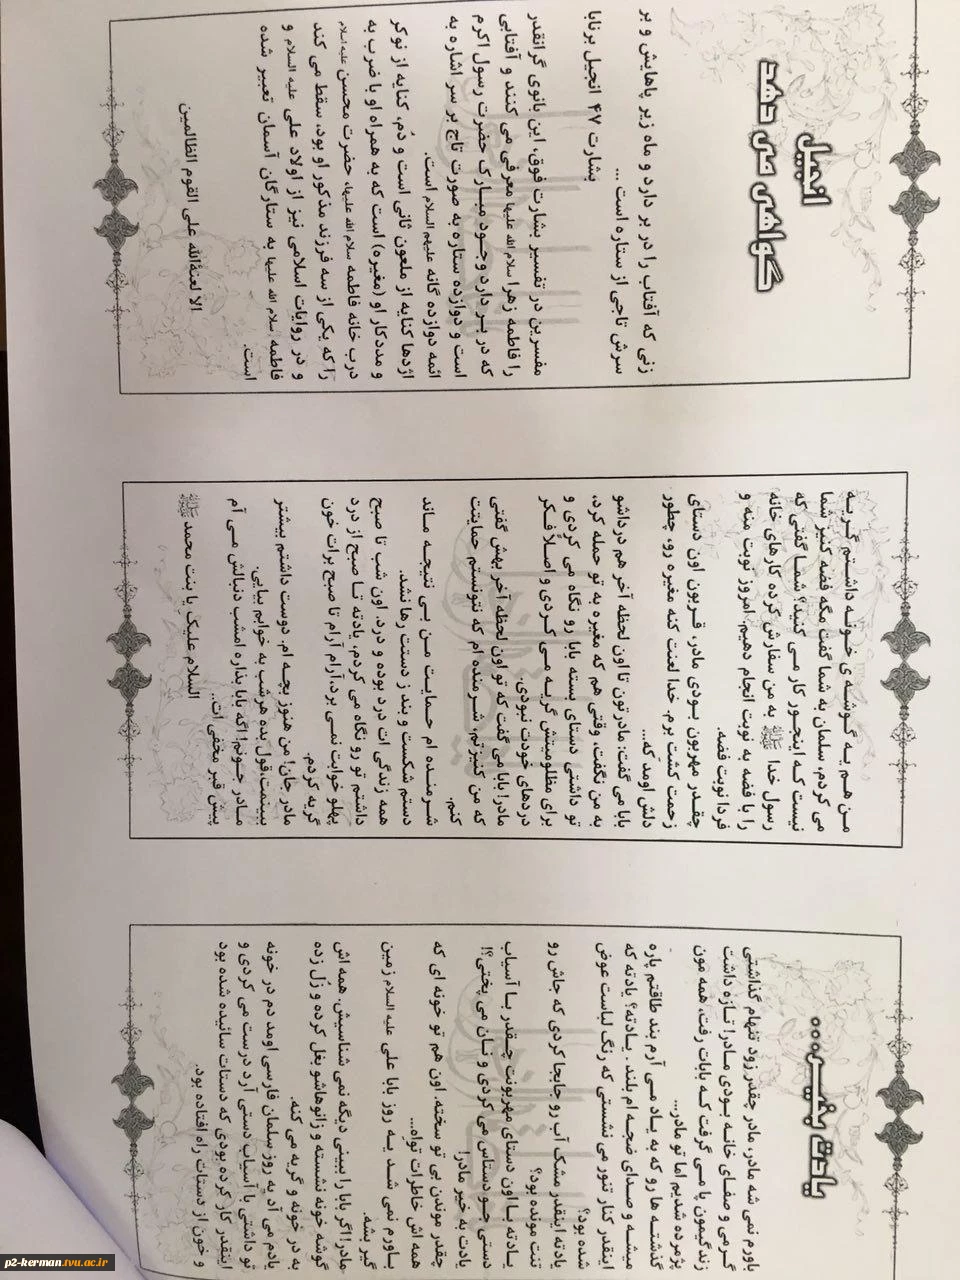 یادت بخیر...
باورم نمی شه مادر، مادر چقدر زود تنهام گذاشتی
گرمی و صفای خانه بودی مادر! تازه داشت
زندگیمون پا می گرفت که بابات رفت، همه مون
پژمرده شدیم اما تو مادر...
گذشته ها رو که به یاد می آرم بند طاقتم پاره
میشه و صدای ضجه ام بلند. یادته؟ یادته که
اینقدر کنار تنور می نشستی که رنگ لباست عوض
شده بود؟
یادته اینقدر مشک آب رو جابجا کردی که جاش رو
تنت مونده بود؟
یادته با اون دستای مهربونت چقدر با آسیاب
دستی جو دستاس می کردی و نان می پختی؟!
یادت به خیر مادر!
چقدر موندن بی تو سخته، اون هم تو خونه ای که
همه اش خاطرات توأه...
باورم نمی شد یه روز بابا علی علیه السلام زمین
گیر بشه.
مادر! اگر بابا را ببینی دیگه نمی شناسیش، همه اش
گوشه خونه نشسته و زانوهاشو بغل کرده و زُل زده
به در خونه و گریه می کنه.
یادم می آد یه روز سلمان فارسی اومد دم در خونه
تو داشتی با آسیاب دستی آرد درست می کردی و
اینقدر کار کرده بودی که دستات سائیده شده بود
و خون از دستات راه افتاده بود.
من هم یه گوشه ی خونه داشتم گریه
می کردم، سلمان به شما گفت مگه فضه کنیز شما
نیست که اینجور کار می کنید؟ شما گفتی که
رسول خدا ﷺ به من سفارش کرده کارهای خانه
را با فضه به نوبت انجام دهیم، امروز نوبت منه و
فردا نوبت فضه.
چقدر مهربون بودی مادر، قربون اون دستای
زحمت کشت برم. خدا لعنت کنه مغیره رو، چطور
دلش اومد که...
بابا می گفت: مادرتون تا اون لحظه آخر هم درداشو
به من نگفت، وقتی هم که مغیره به تو حمله کرد،
تو داشتی دستای بسته بابا رو نگاه می کردی و
برای مظلومیتش گریه می کردی و اصلاً فکر
دردهای خودت نبودی.
مادر! بابا می گفت که تو اون لحظه آخر بهش گفتی
که من کنیزتم، شرمنده ام که نتونستم حمایتت
کنم.
شرمنده ام حمایت من بی نتیجه ماند
دستم شکست و بند ز دستت رها نشد.
همه زندگی ات درد بوده و درد. اون شب تا صبح
داشتم تو رو نگاه می کردم، یادته تا صبح از درد
پهلو خوابت نمی برد، آرام آرام تا صبح برات خون
گریه کردم.
مادر جان! من هنوز بچه ام. دوست داشتم بیشتر
ببینمت، قول بده هرشب به خوابم بیایی.
مادر جونم! اگه بابا بذاره امشب دنبالش می آم
پیش قبر مخفی ات..
السلام علیک یا بنت محمد ﷺ
انجیل
گواهی می دهد
زنی که آفتاب را در بر دارد و ماه زیر پاهایش و بر
سرش تاجی از ستاره است ...
بشارت ۴۷ انجیل برنابا
مفسرین در تفسیر بشارت فوق، این بانوی گرانقدر
را فاطمه زهرا سلام الله علیها معرفی می کنند و آفتابی
که در بر دارد وجود مبارک حضرت رسول اکرم
است و دوازده ستاره به صورت تاج بر سر اشاره به
ائمه دوازده گانه علیهم السلام است.
اژدها کنایه از ملعون ثانی است و دُم، کنایه از نوکر
و مددکار او (مغیره) است که به همراه او با ضرب به
درب خانه فاطمه سلام الله علیها، حضرت محسن علیه السلام
را که یکی از سه فرزند مذکور او بود، سقط می کند
و در روایات اسلامی نیز از اولاد علی علیه السلام و
فاطمه سلام الله علیها به ستارگان آسمان تعبیر شده
است.
الا لعنةالله علی القوم الظالمین
p2-kerman.tvu.ac.ir